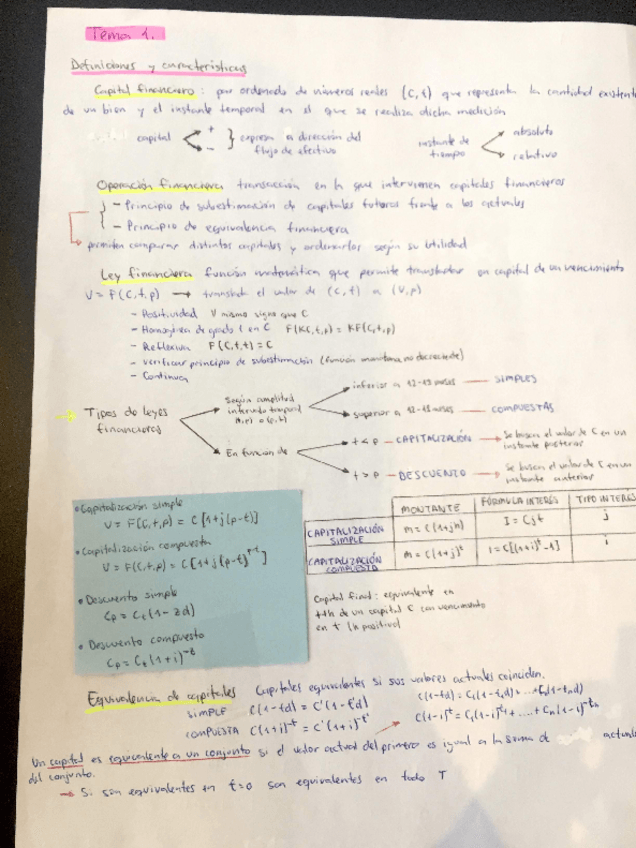 Tema 1.
Definiciones y características
Capital financiero: par ordenado de números reales (C,t) que representa la cantidad existente
de un bien y el instante temporal en el que se realiza dicha medición
capital + - } expresa a dirección del flujo de efectivo
instante de tiempo absoluto relativo
Operación financiera transacción en la que intervienen capitales financieros
- Principio de subestimación de capitales futuros frente a los actuales
- Principio de equivalencia financiera
permiten comparar distintos capitales y ordenarlos según su utilidad
Ley financiera función matemática que permite transladar un capital de un vencimiento
V = F(C,t,p) → translada el valor de (C,t) a (V,p)
- Positividad V mismo signo que C
- Homogénea de grado 1 en C F(KC,t,p) = KF(C,t,p)
- Reflexiva F(C,t,t) = C
- Verificar principio de subestimación (función monótona no decreciente)
- Continua
→ Tipos de leyes financieros
Según amplitud intervalo temporal
inferior a 12-18 meses — SIMPLES
superior a 12-18 meses — COMPUESTAS
En función de
t < p — CAPITALIZACIÓN → Se busca el valor de C en un instante posterior
t > p — DESCUENTO → Se busca el valor de C en un instante anterior
• Capitalización simple
V = F(C,t,p) = C[1+j(p-t)]
• Capitalización compuesta
V = F(C,t,p) = C[1+j(p-t)
• Descuento simple
Cp = Ct(1-
• Descuento compuesto
Cp = Ct(1+i)
MONTANTE FORMULA INTERÉS TIPO INTERÉS
CAPITALIZACIÓN SIMPLE I = Cjt j
CAPITALIZACIÓN COMPUESTA M = C(1+i)^t I = C[(1+i)^t-1] i
Capital final: equivalente en
t+h de un capital C con vencimiento
en t (h positivo)
Equivalencia de capitales Capitales equivalentes si sus valores actuales coinciden.
SIMPLE C(1-td) = C'(1-t'd)
COMPUESTA C(1+i)^-t = C'(1+i)^-t'
C(1-td) = C1(1-t1d)+...+Cn(1-tnd)
C(1-i)^t = C1(1-i)^t1+...+Cn(1-i)^-tn
Un capital es equivalente a un conjunto si el valor actual del primero es igual a la suma de actuales
del conjunto.
→ Si son equivalentes en t=0 son equivalentes en todo T